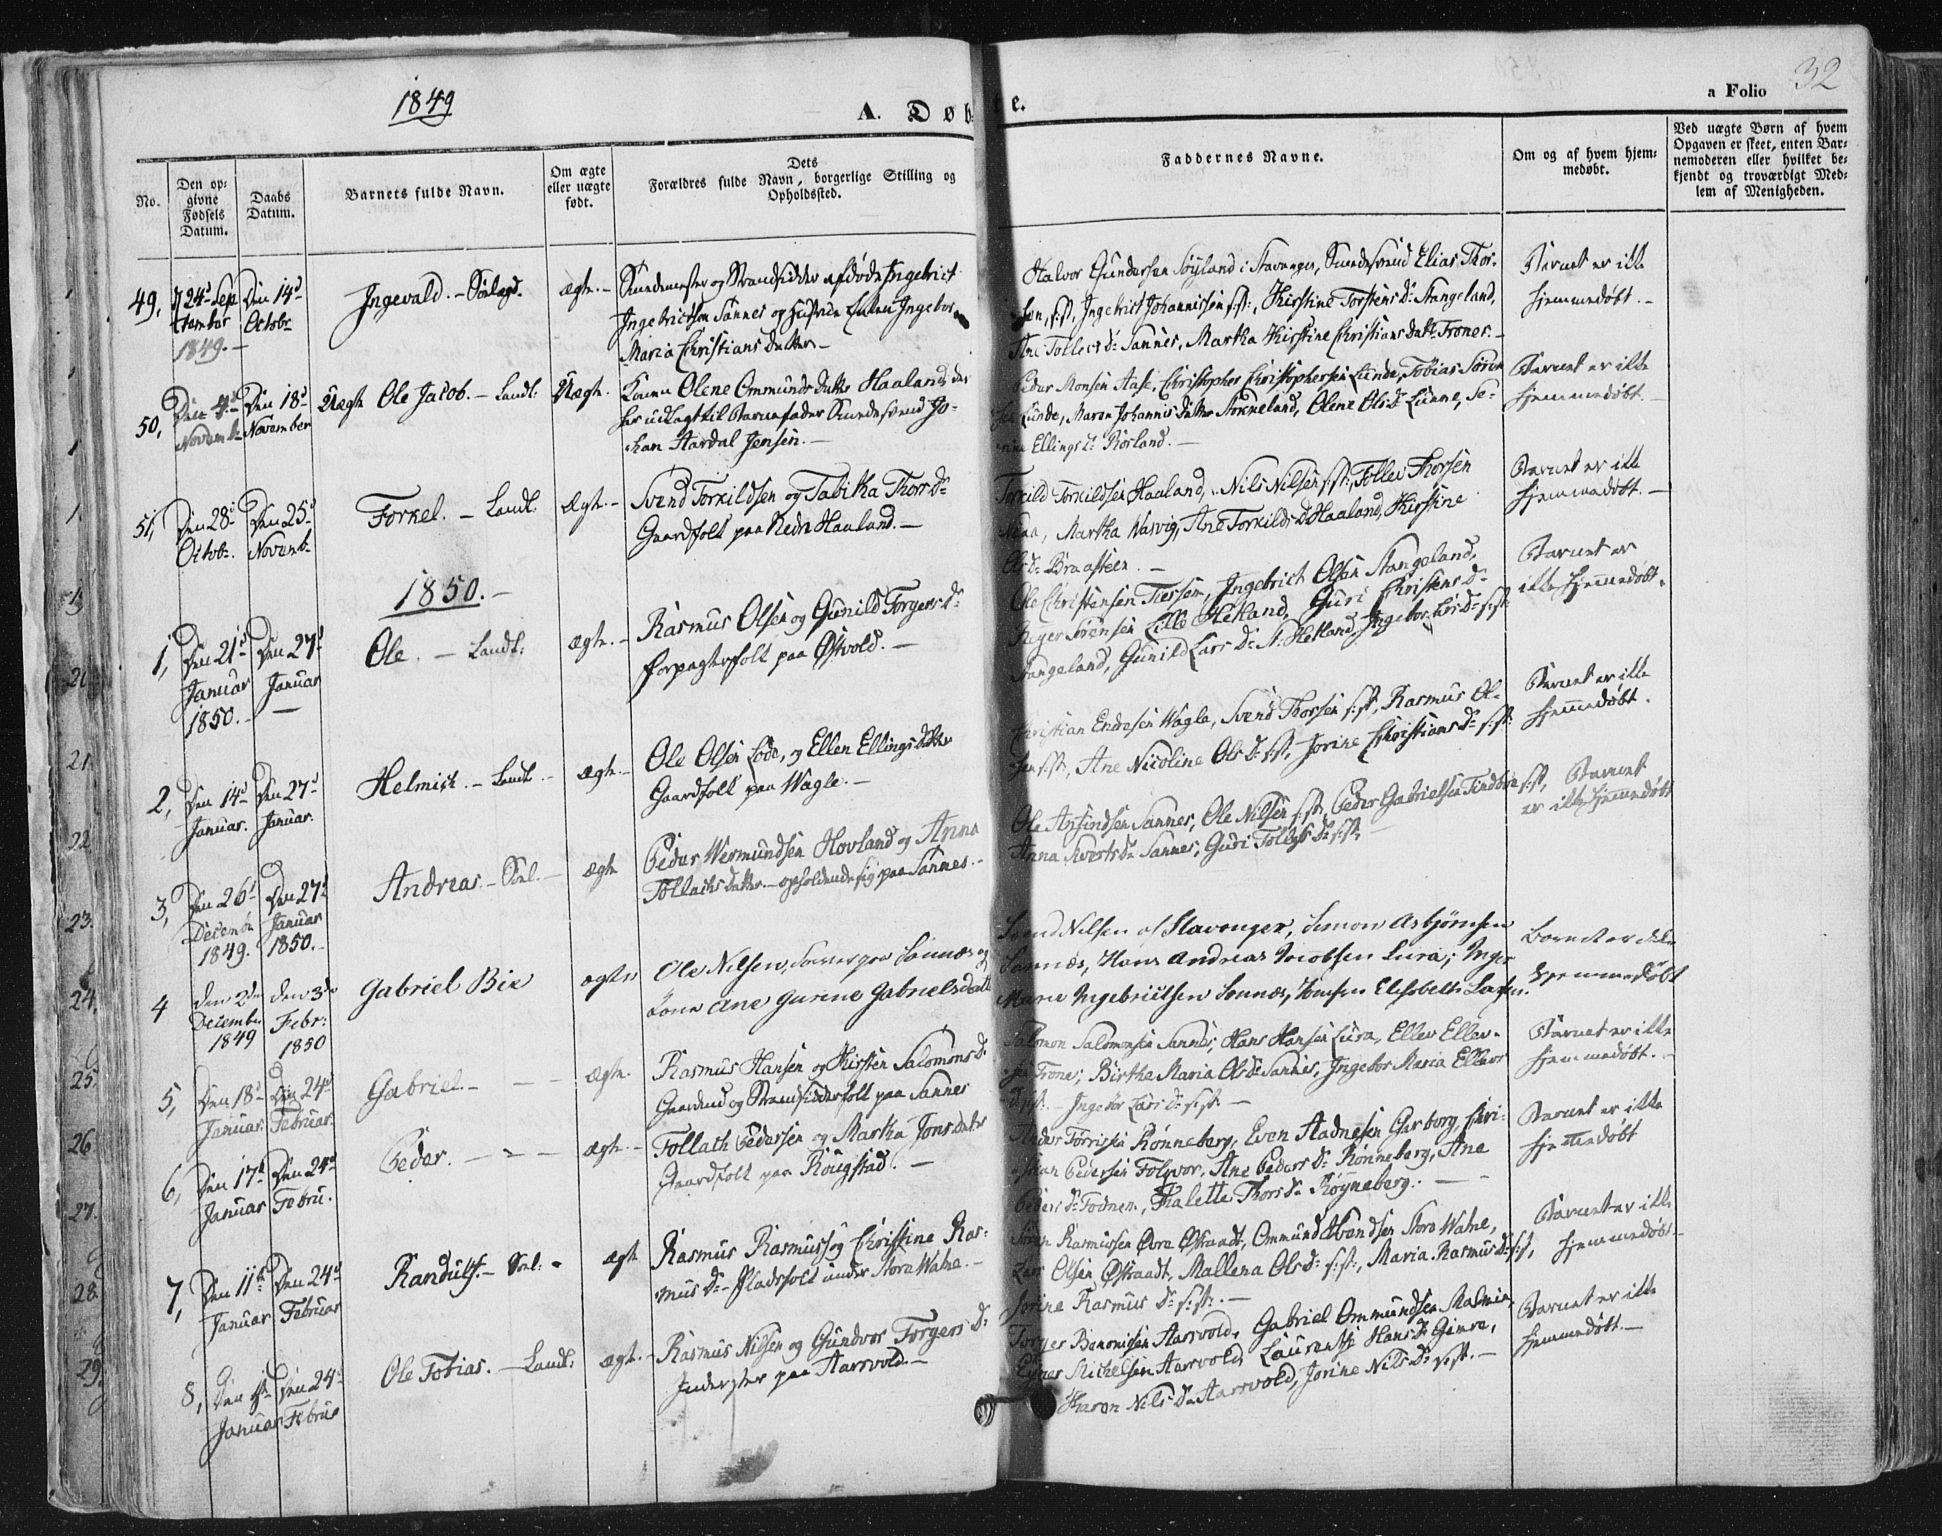 1849
A. Døbte.
a Folio 32
No.
Den opgivne Fødsels Datum.
Daabs Datum.
Barnets fulde Navn.
Om ægte eller uægte født.
Dets Forældres fulde Navn, borgerlige Stilling og Opholdssted.
Faddernes Navne.
Om og af hvem hjemmedøbt.
Ved uægte Børn af hvem Opgaven er skeet, enten Barnemoderen eller hvilket bekjendt og troværdigt Medlem af Menigheden.
49, 24d September 1849.
Den 14d Octobr
Ingevald.
Ægte.
Smedemester og Strandsidder afdøde Ingebrict
Ingebrictsen Sannes og Ingebor
Maria Christians Datter
Halvor Gundersen Søyland i Stavanger, Smedesvend Elias Thor-
sen, s:st, Ingebrict Johannissen s:st:, Kirstine Torstens Dr Stangeland,
Ane Tollevs Dr Sannes, Martha Kirstine Christians Datt: Frones.
Barnet er ikke
hjemmedøbt.
50, Den 4d Novembr
Den 18d November
Uægte Ole Jacob. Landt:
Uægte.
Konen Olene Ommunds Datter Haaland, der
har udlagt til Barnefader Smedesvend Jo-
han Aardal Jensen.
Peder Monsen Aase, Christopher Christophersen Lunde, Tobias Søren
sen Lunde, Maren Johannis Datter Stokneland, Olene Ols Dr Lunne, Se-
rine Ellings Dr Rørland.
Barnet er ikke
hjemmedøbt.
51, Den 28d Octobr.
Den 25d Novembr
Torkel. Landt:
Ægte.
Svend Torkildsen og Tabitha Thors Dr
Gaardfolk paa Nedre Haaland.
Torkild Torkildsen Haaland, Nils Nilsen s:st:, Tollev Thorsen
Martha Vasvig, Ane Torkilds D Haaland, Kirstine
Ols Dr Braasteen.
Barnet er ikke
hjemmedøbt.
1850.
1, Den 21d Januar 1850.
Den 27d Januar
Ole. Landt:
Ægte.
Rasmus Olsen og Gunild Torgers Dr
Forpagterfolk paa Østvold.
Ole Christensen Tjessem, Ingebrict Olsen Stangeland,
Reger Sørensen Lille Hetland, Guri Christens Dr
Stangeland, Gunild Lars Dr St. Hetland, Ingebor Lars Dr s:st
Barnet er
ikke hjemmedøbt.
2, Den 14d Januar.
Den 27d Januar.
Helmick. Landt
Ægte.
Ole Olsen Lode, og Ellen Ellings Datter
Gaardfolk paa Wagle.
Christian Endresen Wagle, Svend Thorsen s:st, Rasmus Ol-
sen s:st, Ane Nicoline Ols Dr s:st, Jorine Christians Dr s:st:
Barnet er ikke
hjemmedøbt.
3, Den 26d Decembr 1849.
Den 27d Januar 1850.
Andreas.
Ægte
Peder Wermundsen Hovland og Anna
Tollachs Datter, opholdende sig paa Sannes.
Ole Ansindsen Sannes, Ole Nilsen s:st, Peder Gabrielsen s:st,
Anna Sivertsdr Sannes, Guri Tollefs Dr s:st.
Barnet
er ikke hjemmedøbt
4 Den 2den Decembr 1849
Den 3de Febr: 1850
Gabriel Bie
ægte
Ole Nilsen, paa Sannæs og
Kone Ane Gurine Gabrielsdatt
Svend Nilsen af Stavanger, Simon Asbjørnsen
Sannæs, Hans Andreas Jacobsen Lura, Inger
Marie Ingebrictsen Sannæs, Elisabeth
Barnet er ikke
hjemmedøbt
5, Den 18d Januar.
Den 24d Februar.
Gabriel.
Ægte.
Rasmus Hansen og Kirsten Salomons Dr
Gaardmd og Strandsidderfolk paa Sannes
Salomon Salomonsen Sannes, Hans Hansen Lura, Ellev Ellev-
sen Frone, Birthe Maria Ols Dr Sannes, Ingebor Maria Ellevs
Dr s:st. Ingebor Lars Dr s:st.
Barnet er ikke
hjemmedøbt.
6, Den 17d Januar
Den 24d Febru.
Peder.
Ægte.
Tollach Pedersen og Martha Jons datter
Gaardfolk paa Rougstad.
Anders Torrissen Rønneberg, Even Aadnesen Garborg, Chri-
stian Pedersen Folkvor, Ane Peders Dr Rønneberg, Ane
Peders Dr Todnem, Malette Thors Dr Røyneberg.
Barnet er ikke
hjemmedøbt
7, Den 11te Januar
Den 24d Februar
Randulf.
Ægte
Rasmus Rasmuss og Christine Ras-
mus Dr Pladsfolk under Store Watne.
Søren Rasmussen Øvre Østraadt, Ommund Store Watne,
Lars Olsen Østraadt, Mallena Ols Dr s:st:, Maria Rasmus Dr s:st,
Jorine Rasmus Dr s:st:.
Barnet er ikke
hjemmedøbt
8, Januar
Den 24d Februar
Ole Tobias. Landt:
Ægte.
Rasmus Nilsen og Gundvor Torgers Dr
Inderster paa Aarsvold.
Torger Benonisen Aarsvold, Gabriel Ommundsen Malmin,
Michelsen Aarsvold, Laurentse Hans Dr Gimre,
Karen Nils Dr Aarsvold, Jorine Nils Dr s:st.
Barnet er ikke
hjemmedøbt.
21.
22.
23.
24.
25.
26
27.
28.
29.